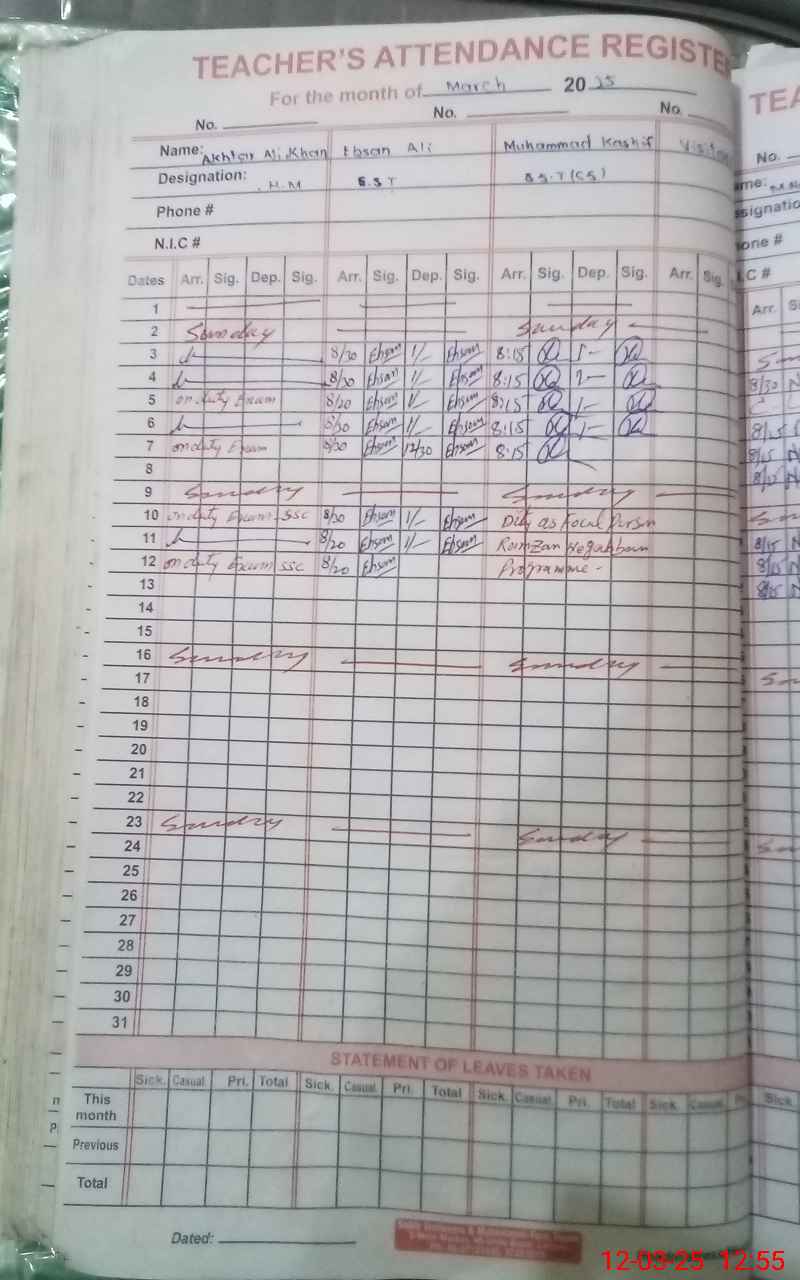 TEACHER'S ATTENDANCE REGISTE
For the month of March 20 25
No. No. No.
Name: Akhtar Ali Khan Ehsan Ali Muhammad Kashif
Designation: H.M S.S.T S.S.T (CS)
Phone #
N.I.C #
Dates Arr. Sig. Dep. Sig. Arr. Sig. Dep. Sig. Arr. Sig. Dep. Sig. Arr. Sig.
1
2 Sunday Sunday
3 8/30 Ehsan 1/- Ehsan 8:15 1-
4 8/30 Ehsan 1/- Ehsan 8:15
5 on duty Exam 8/20 Ehsan 1/- Ehsan 8:15 1-
6 8/30 Ehsan 1/- Ehsan 8:15 1-
7 on duty Exam 8/30 Ehsan 12/30 Ehsan 8:15
8
9 Sunday Sunday
10 on duty Exam SSC 8/30 Ehsan 1/- Ehsan Duty as Focal Person
11 8/20 Ehsan 1/- Ehsan Ramzan Negahban
12 on duty Exam SSC 8/20 Ehsan Programme -
13
14
15
16 Sunday Sunday
17
18
19
20
21
22
23 Sunday Sunday
24
25
26
27
28
29
30
31
STATEMENT OF LEAVES TAKEN
Sick. Casual Pri. Total Sick. Casual Pri. Total Sick. Casual Pri. Total Sick. Casual
This month
Previous
Total
Dated:
12-03-25 12:55
TEA
No.
C #
Arr.
8/30
8/15
8/15
8/15
8/15
Sick.